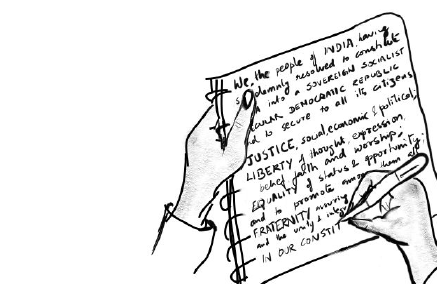 We, the people of INDIA, having
solemnly resolved to constitute
into a SOVEREIGN SOCIALIST
DEMOCRATIC REPUBLIC
to secure to all its citizens
JUSTICE, social, economic & political,
LIBERTY of thought, expression,
belief, faith and worship,
EQUALITY of status & opportunity,
and to promote among them all
FRATERNITY assuring
and the unity &
IN OUR CONSTIT